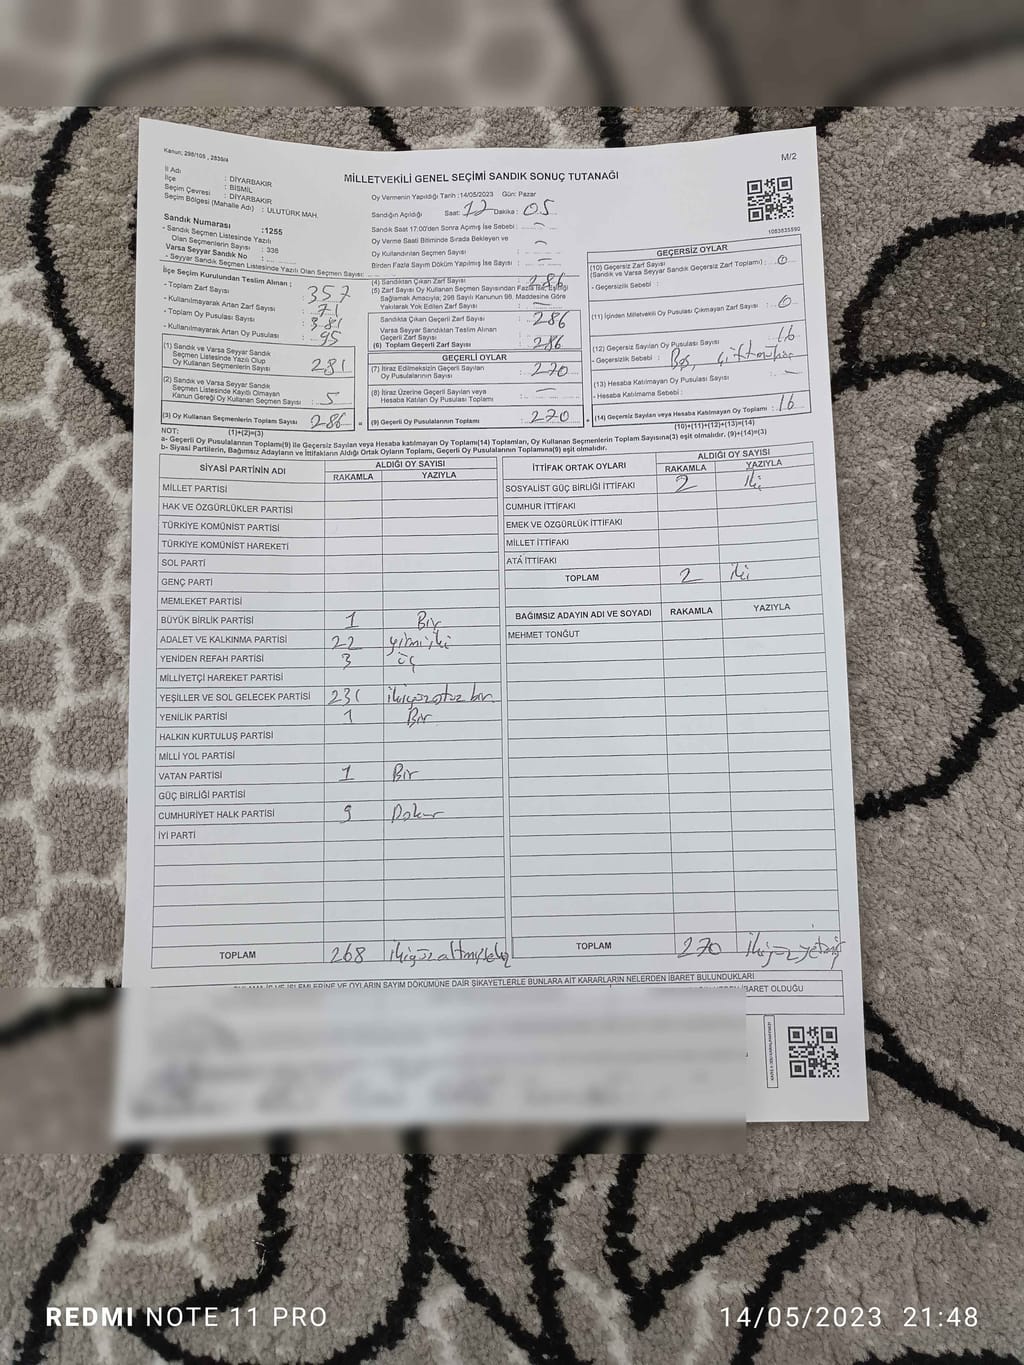 Kanun; 298/105 , 2839/4
M/2
MİLLETVEKİLİ GENEL SEÇİMİ SANDIK SONUÇ TUTANAĞI
İl Adı : DİYARBAKIR
İlçe : BİSMİL
Seçim Çevresi : DİYARBAKIR
Seçim Bölgesi (Mahalle Adı) : ULUTÜRK MAH.
Sandık Numarası :1255
- Sandık Seçmen Listesinde Yazılı
Olan Seçmenlerin Sayısı : 336
Varsa Seyyar Sandık No :
- Seyyar Sandık Seçmen Listesinde Yazılı Olan Seçmen Sayısı:
Oy Vermenin Yapıldığı Tarih :14/05/2023 Gün: Pazar
Sandığın Açıldığı Saat: 17 Dakika : 05
Sandık Saat 17:00'den Sonra Açılmış İse Sebebi : —
Oy Verme Saati Bitiminde Sırada Bekleyen ve
Oy Kullandırılan Seçmen Sayısı : —
Birden Fazla Sayım Döküm Yapılmış İse Sayısı : —
1083835590
İlçe Seçim Kurulundan Teslim Alınan ;
- Toplam Zarf Sayısı : 357
- Kullanılmayarak Artan Zarf Sayısı : 71
- Toplam Oy Pusulası Sayısı : 381
- Kullanılmayarak Artan Oy Pusulası : 95
(1) Sandık ve Varsa Seyyar Sandık
Seçmen Listesinde Yazılı Olup
Oy Kullanan Seçmenlerin Sayısı : 281
(2) Sandık ve Varsa Seyyar Sandık
Seçmen Listesinde Kayıtlı Olmayan
Kanun Gereği Oy Kullanan Seçmen Sayısı : 5
(3) Oy Kullanan Seçmenlerin Toplam Sayısı : 286
(1)+(2)=(3)
(4) Sandıktan Çıkan Zarf Sayısı : 286
(5) Zarf Sayısı Oy Kullanan Seçmen Sayısından Fazla İse, Eşitliği
Sağlamak Amacıyla; 298 Sayılı Kanunun 98. Maddesine Göre
Yakılarak Yok Edilen Zarf Sayısı : —
Sandıkta Çıkan Geçerli Zarf Sayısı : 286
Varsa Seyyar Sandıktan Teslim Alınan
Geçerli Zarf Sayısı : —
(6) Toplam Geçerli Zarf Sayısı : 286
GEÇERLİ OYLAR
(7) İtiraz Edilmeksizin Geçerli Sayılan
Oy Pusulalarının Sayısı : 270
(8) İtiraz Üzerine Geçerli Sayılan veya
Hesaba Katılan Oy Pusulası Toplamı : —
(9) Geçerli Oy Pusulalarının Toplamı : 270
GEÇERSİZ OYLAR
(10) Geçersiz Zarf Sayısı
(Sandık ve Varsa Seyyar Sandık Geçersiz Zarf Toplamı) : 0
- Geçersizlik Sebebi :
(11) İçinden Milletvekili Oy Pusulası Çıkmayan Zarf Sayısı : 0
(12) Geçersiz Sayılan Oy Pusulası Sayısı : 16
- Geçersizlik Sebebi : Boş,
(13) Hesaba Katılmayan Oy Pusulası Sayısı : —
- Hesaba Katılmama Sebebi :
(14) Geçersiz Sayılan veya Hesaba Katılmayan Oy Toplamı : 16
(10)+(11)+(12)+(13)=(14)
NOT:
a- Geçerli Oy Pusulalarının Toplamı(9) ile Geçersiz Sayılan veya Hesaba katılmayan Oy Toplamı(14) Toplamları, Oy Kullanan Seçmenlerin Toplam Sayısına(3) eşit olmalıdır. (9)+(14)=(3)
b- Siyasi Partilerin, Bağımsız Adayların ve İttifakların Aldığı Ortak Oyların Toplamı, Geçerli Oy Pusulalarının Toplamına(9) eşit olmalıdır.
SİYASİ PARTİNİN ADI ALDIĞI OY SAYISI
RAKAMLA YAZIYLA
MİLLET PARTİSİ
HAK VE ÖZGÜRLÜKLER PARTİSİ
TÜRKİYE KOMÜNİST PARTİSİ
TÜRKİYE KOMÜNİST HAREKETİ
SOL PARTİ
GENÇ PARTİ
MEMLEKET PARTİSİ
BÜYÜK BİRLİK PARTİSİ 1 Bir
ADALET VE KALKINMA PARTİSİ 22 yirmiiki
YENİDEN REFAH PARTİSİ 3 üç
MİLLİYETÇİ HAREKET PARTİSİ
YEŞİLLER VE SOL GELECEK PARTİSİ 231 ikiyüzotuz bir
YENİLİK PARTİSİ 1 Bir
HALKIN KURTULUŞ PARTİSİ
MİLLİ YOL PARTİSİ
VATAN PARTİSİ 1 Bir
GÜÇ BİRLİĞİ PARTİSİ
CUMHURİYET HALK PARTİSİ 9 Dokuz
İYİ PARTİ
TOPLAM 268 ikiyüzaltmışsekiz
İTTİFAK ORTAK OYLARI ALDIĞI OY SAYISI
RAKAMLA YAZIYLA
SOSYALİST GÜÇ BİRLİĞİ İTTİFAKI 2 iki
CUMHUR İTTİFAKI
EMEK VE ÖZGÜRLÜK İTTİFAKI
MİLLET İTTİFAKI
ATA İTTİFAKI
TOPLAM 2 iki
BAĞIMSIZ ADAYIN ADI VE SOYADI RAKAMLA YAZIYLA
MEHMET TONĞUT
TOPLAM 270 ikiyüzyetmiş
İŞLEMLERİNE VE OYLARIN SAYIM DÖKÜMÜNE DAİR ŞİKAYETLERLE BUNLARA AİT KARARLARIN NELERDEN İBARET BULUNDUKLARI
İBARET OLDUĞU
REDMI NOTE 11 PRO
14/05/2023 21:48